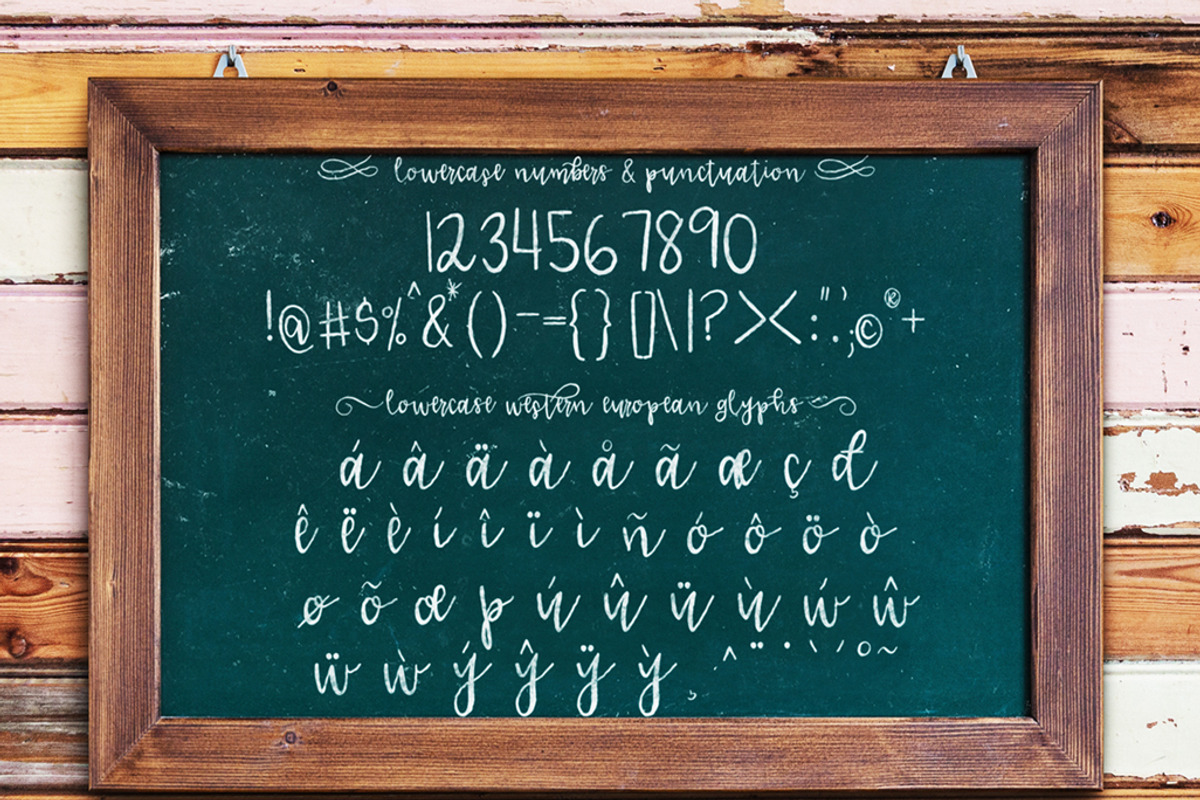 lowercase numbers & punctuation
1234567890
!@#$%^&*()-={}[]\|?><:"'.,;©®+
lowercase western european glyphs
á â ä à å ã æ ç đ
ê ë è í î ï ì ñ ó ô ö ò
ø õ œ þ ú û ü ù ẃ ŵ
ẅ ẁ ý ŷ ÿ ỳ ¸ ˆ ¨ ˙ ` ´ ˚ ˜